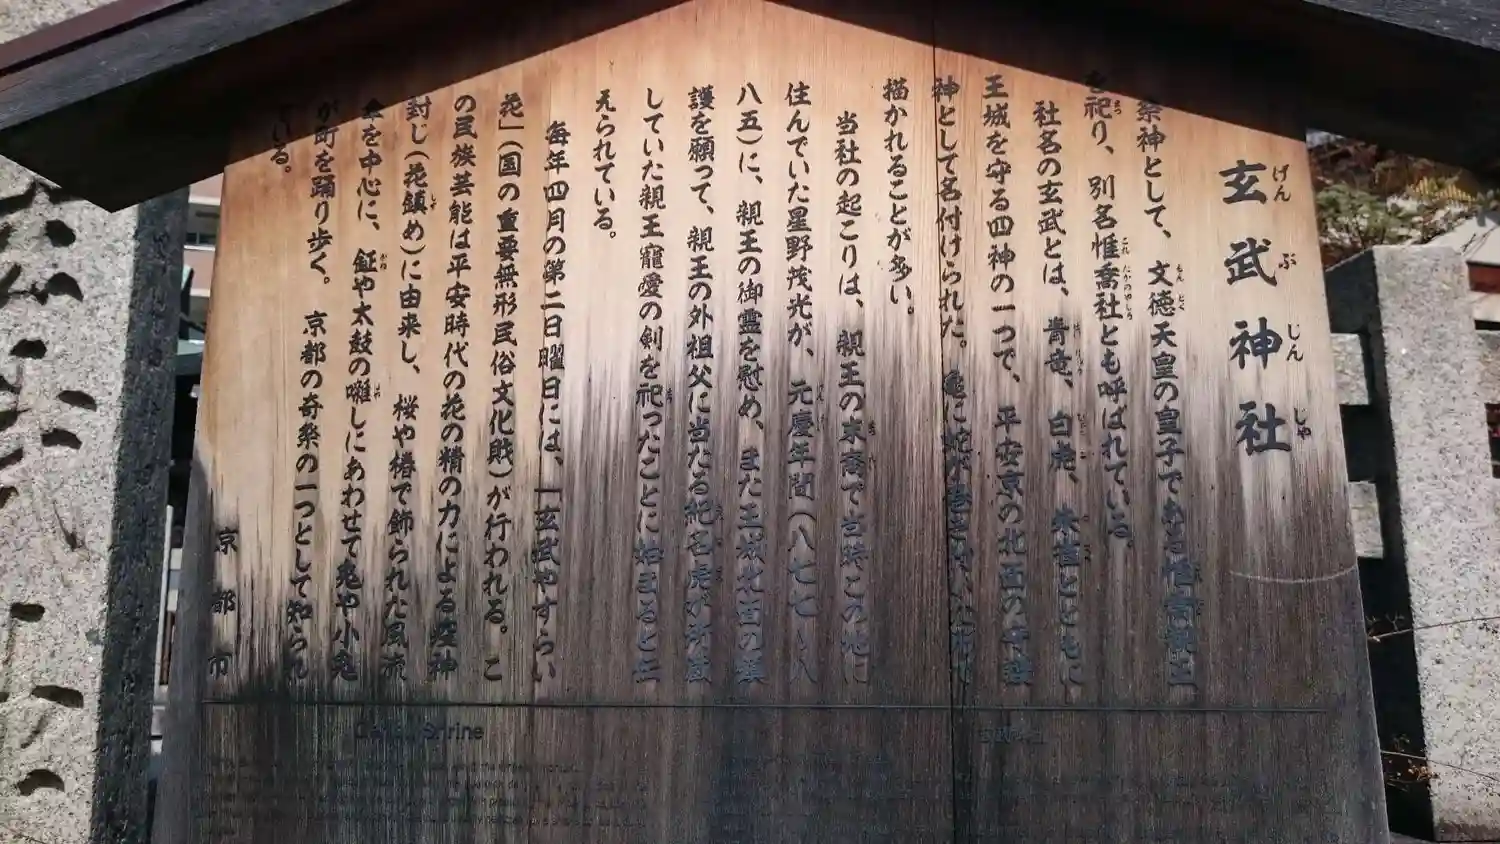 玄武神社
祭神として、文徳天皇の皇子である惟喬親王
を祀り、別名惟喬社とも呼ばれている。
社名の玄武とは、青竜、白虎、朱雀とともに
王城を守る四神の一つで、平安京の北面の守護
神として名付けられた。亀に蛇が巻き付いた形で
描かれることが多い。
当社の起こりは、親王の末裔で当時この地に
住んでいた星野茂光が、元慶年間（八七七〜八
八五）に、親王の御霊を慰め、また王城北面の鎮
護を願って、親王の外祖父に当たる紀名虎が所蔵
していた親王寵愛の剣を祀ったことに始まると伝
えられている。
毎年四月の第二日曜日には、「玄武やすらい
花」（国の重要無形民俗文化財）が行われる。こ
の民族芸能は平安時代の花の精の力による疫神
封じ（花鎮め）に由来し、桜や椿で飾られた風流
傘を中心に、鉦や太鼓の囃しにあわせて鬼や小鬼
が町を踊り歩く。京都の奇祭の一つとして知られ
ている。
京都市
Genbu Shrine